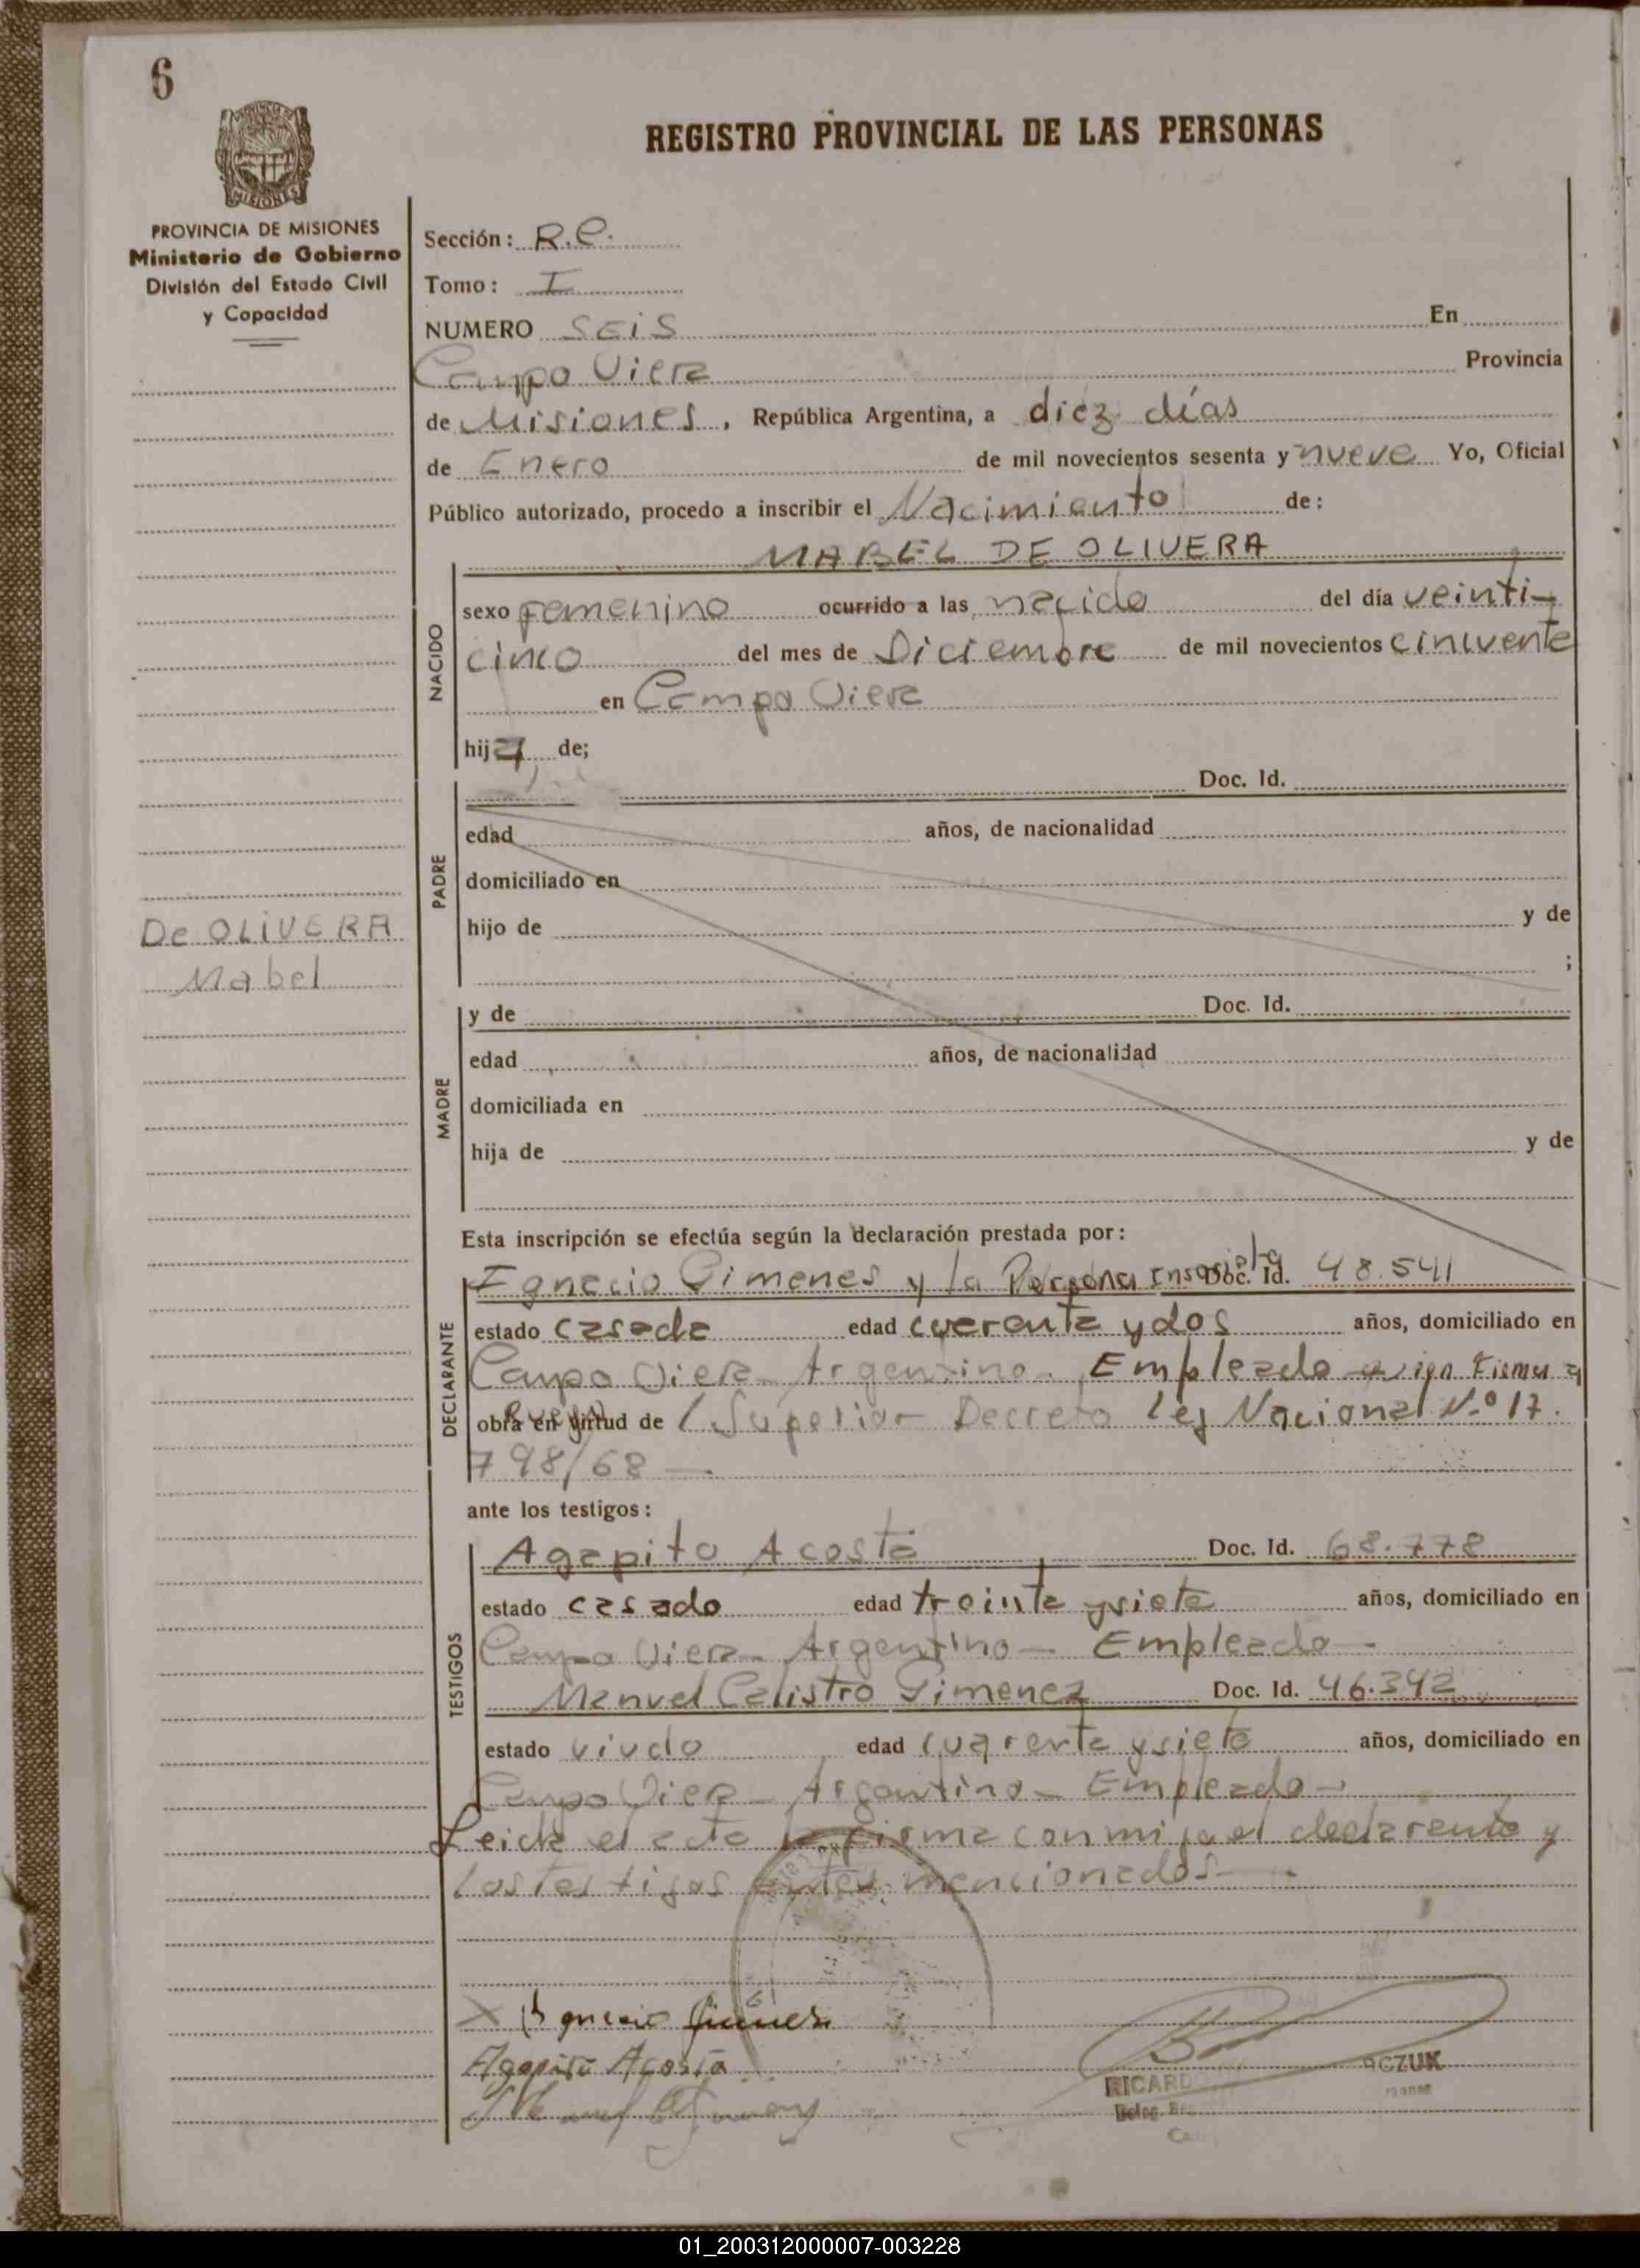 6
PROVINCIA DE MISIONES
Ministerio de Gobierno
División del Estado Civil
y Capacidad
De OLIVERA
Mabel
REGISTRO PROVINCIAL DE LAS PERSONAS
Sección: R.C.
Tomo: I
NUMERO SEIS En
Campo Viera Provincia
de Misiones, República Argentina, a diez días
de Enero de mil novecientos sesenta y nueve Yo, Oficial
Público autorizado, procedo a inscribir el Nacimiento de:
MABEL DE OLIVERA
NACIDO
sexo femenino ocurrido a las nacida del día veinti-
cinco del mes de Diciembre de mil novecientos cincuenta
en Campo Viera
hija de;
PADRE
Doc. Id.
edad años, de nacionalidad
domiciliado en
hijo de y de
;
MADRE
y de Doc. Id.
edad años, de nacionalidad
domiciliada en
hija de y de
Esta inscripción se efectúa según la declaración prestada por:
DECLARANTE
Ignacio Gimenes y la Persona Doc. Id. 48.541
estado casada edad cuarenta y dos años, domiciliado en
Campo Viera - Argentino - Empleado
obra en virtud de Superior Decreto Ley Nacional N.º 17.
798/68 —
ante los testigos:
TESTIGOS
Agapito Acosta Doc. Id. 68.778
estado casado edad treinta y siete años, domiciliado en
Campo Viera - Argentino - Empleado -
Manuel Calistro Gimenez Doc. Id. 46.342
estado viudo edad cuarenta y siete años, domiciliado en
Campo Viera - Argentino - Empleado -
Leida el acta la firma conmigo el declarante y
los testigos antes mencionados -
Ignacio Gimenes
Agapito Acosta
RICARD CZUK
Deleg.
01_200312000007-003228